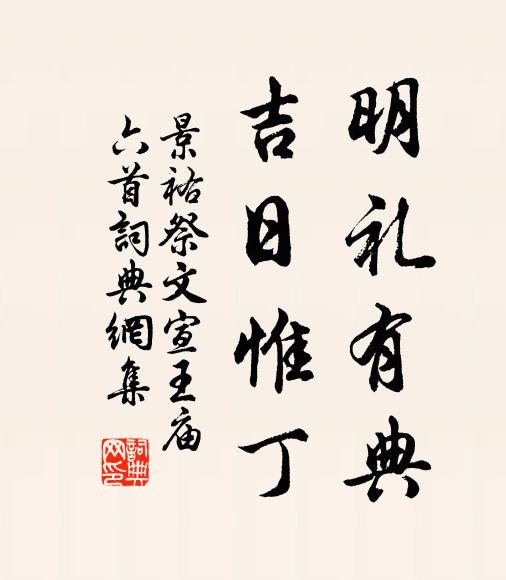 明礼有典
吉日惟丁
景祐祭文宣王庙
六首詞典網集
詞典
网印